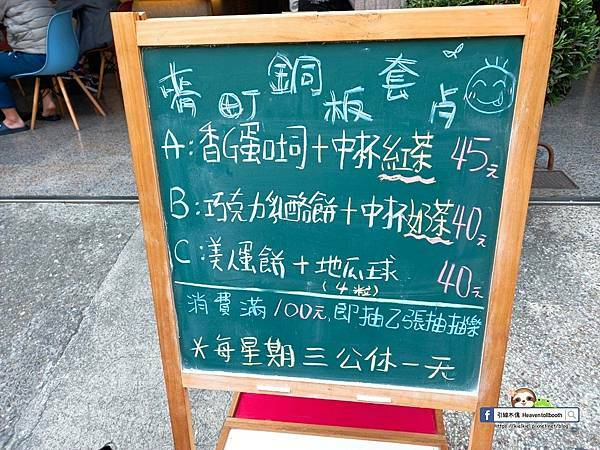 町銅板套点
A:香G蛋吐司+中杯紅茶 45元
B:巧克力乳酪餅+中杯奶茶40元
C 蛋餅+地瓜球 40元
(4粒)
消費滿100元,即抽乙張抽抽樂
*每星期三公休一天
Heaventollbooth